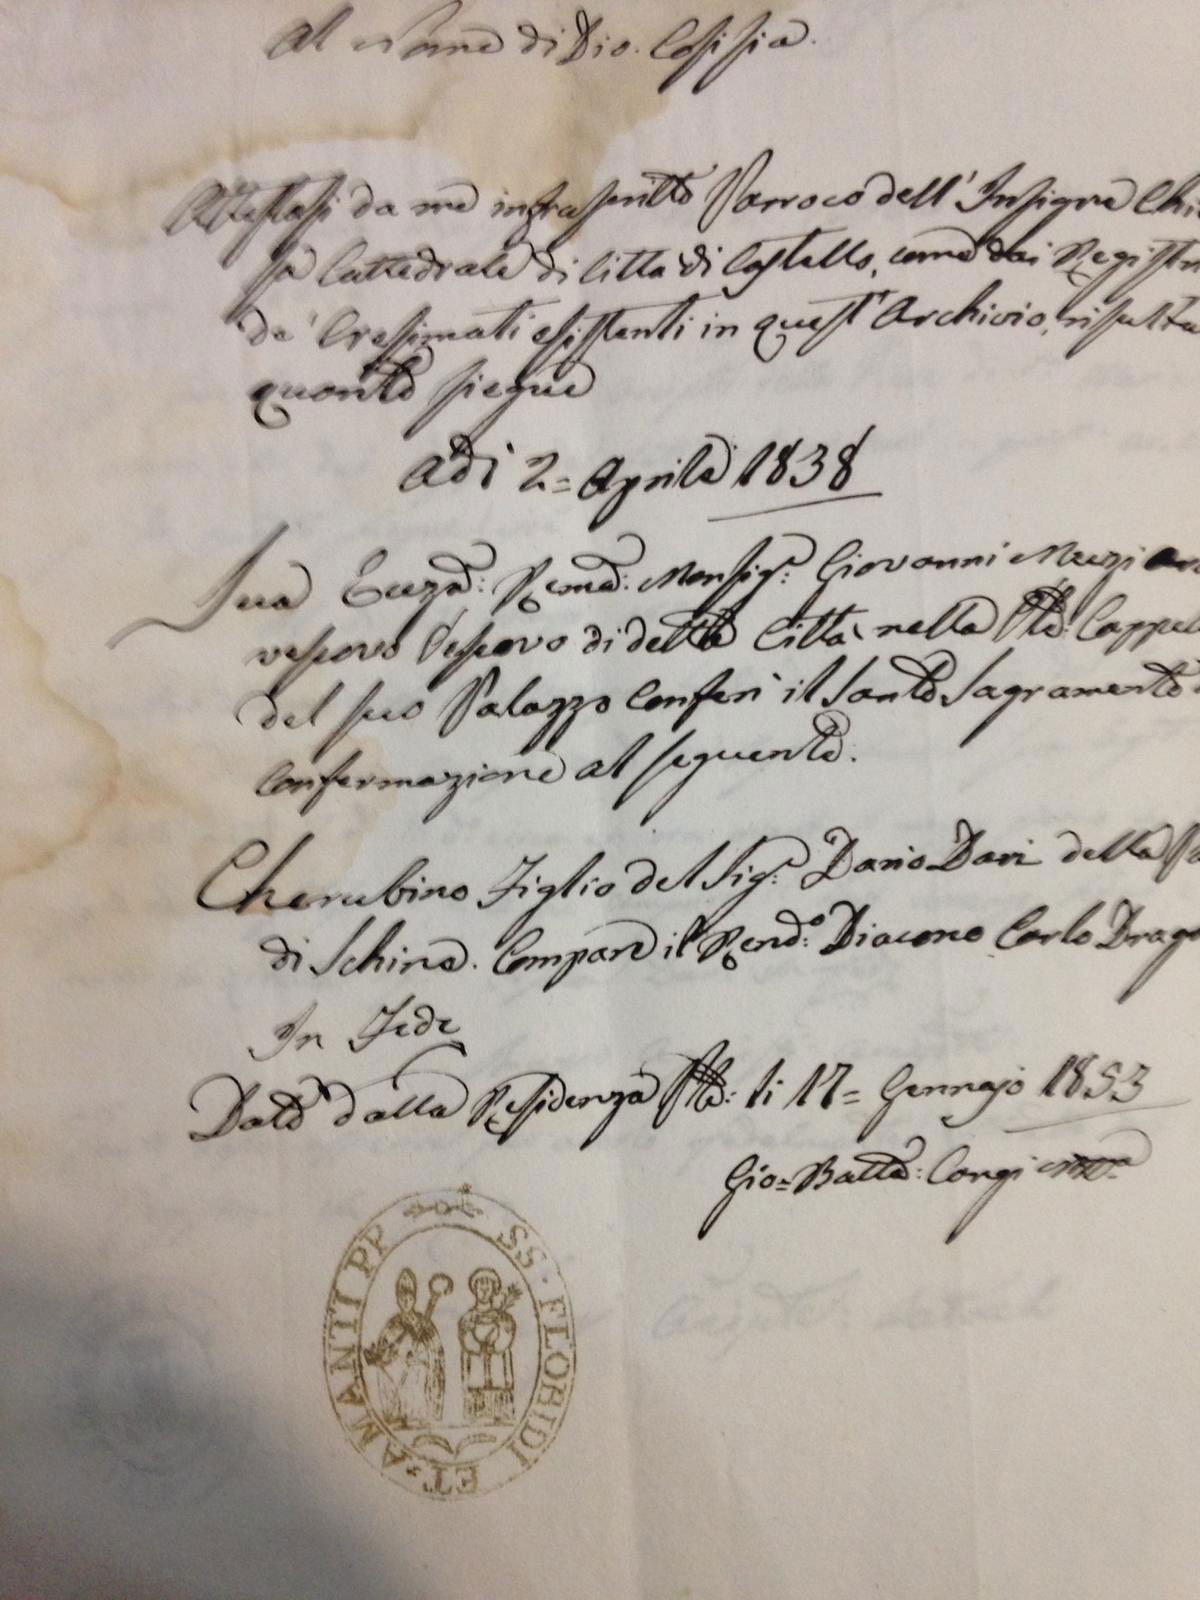 Al Nome di Dio. Così sia.
Attestasi da me infrascritto Parroco dell' Insigne Chie
sa Cattedrale di Città di Castello, come dai Registri
de' Cresimati esistenti in quest' Archivio, risulta
quanto siegue
Adì 2= Aprile 1838
Sua Eccza: Rma: Monsigr: Giovanni Muzi Arci
vescovo Vescovo di detta Città nella Cappel
del suo Palazzo Conferì il Santo Sagramento
Confermazione al seguente.
Cherubino Figlio del Sigr: Dario Dari della
di Schina. Compare il Rendo: Diacono Carlo Drago
In Fede
Dato dalla Residenza li 17= Gennajo 1853
Gio= Batta: Corgi
SS. FLORIDI ET AMANTI PP